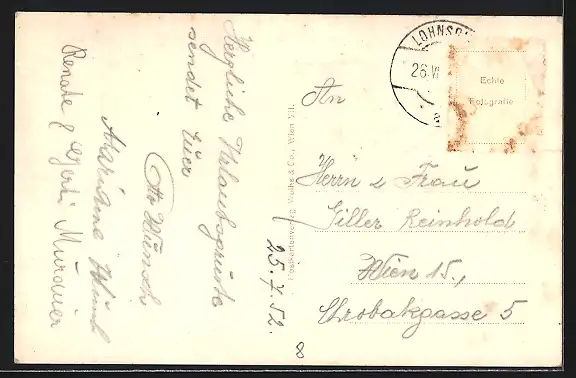 Herzliche Urlaubsgrüße
sendet Euer
Otto Wünsch
Marianne Wünsch
Renate & Gerti
25. 7. 52.
Postkartenverlag Wuths & Co., Wien VII.
8
LOHNSB
26. VI
Echte
Fotografie
An
Herrn u. Frau
Giller Reinhold
Wien 15.,
Chrobakgasse 5